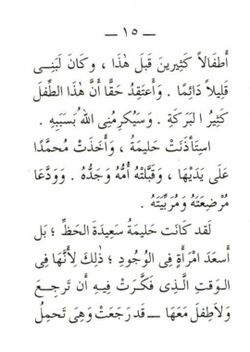 — ١٥ —
أَطْفَالاً كَثِيرِينَ قَبْلَ هٰذَا ، وَكَانَ لَبَنِى
قَلِيلاً دَائِمًا . وَأَعْتَقِدُ حَقًّا أَنَّ هٰذَا الطِّفْلَ
كَثِيرُ البَرَكَةِ . وَسَيُكْرِمُنِى اللهُ بِسَبَبِهِ .
اسْتَأْذَنَتْ حَلِيمَةُ ، وَأَخَذَتْ مُحَمَّدًا
عَلَى يَدَيْهَا ، وَقَبَّلَتْهُ أُمُّهُ وَجَدُّهُ . وَوَدَّعَا
مُرْضِعَتَهُ وَمُرَبِّيَتَهُ
لَقَد كَانَت حَلِيمَةُ سَعِيدَةَ الحَظِّ ؛ بَل
أَسعَدَ امْرَأَةٍ فِى الوُجُودِ ؛ ذٰلِكَ لِأَنَّهَا فِى
الوَقتِ الَّـذِى فَكَّرَتْ فِيهِ أَن تَرجِعَ
وَلاَطِفلَ مَعَهَا — قَد رَجَعَتْ وَهِىَ تَحمِلُ